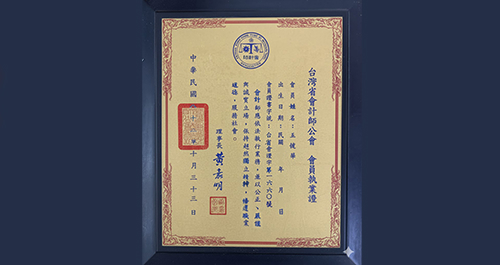 台灣省會計師公會　會員執業證
會員姓名：王健華
出生日期：民國　年　月　日
會員證書字號：台省會證字第一六六〇號
會計師應依法執行業務，並以公正、嚴謹
與誠實立場，依持超然獨立精神，恪遵職業
道德，服務社會。
理事長 黃素明
中華民國　十　年十月三十三日